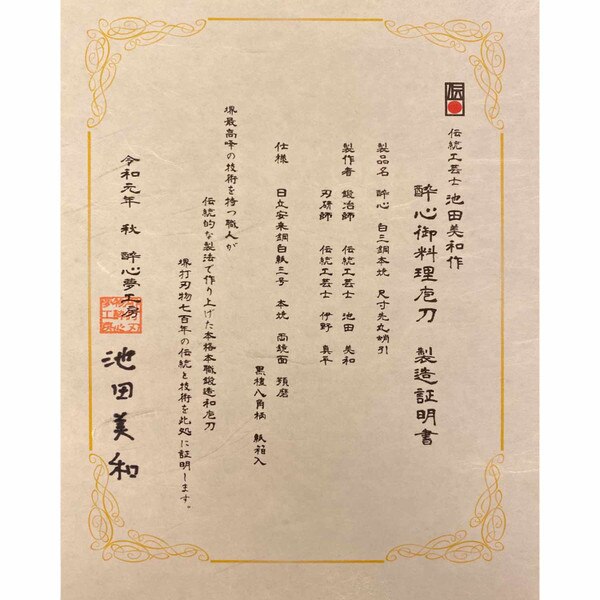 伝
伝統工芸士 池田美和作
酔心御料理庖刀 製造証明書
製品名 酔心 白三鋼本焼 尺寸先丸蛸引
製作者 鍛冶師 伝統工芸士 池田 美和
刃研師 伝統工芸士 伊野 真平
仕様 日立安来鋼白紙三号 本焼 両鏡面 預磨
黒檀八角柄 紙箱入
堺最高峰の技術を持つ職人が
伝統的な製法で作り上げた本格本職鍛造和庖刀
堺打刃物七百年の伝統と技術を此処に証明します。
令和元年 秋 酔心夢工房
池田美和